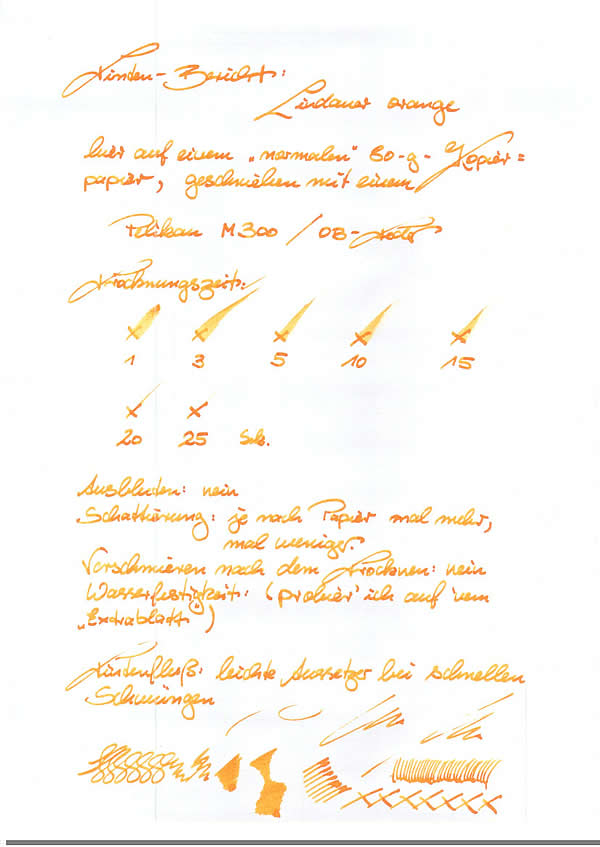 Tinten-Bericht:
Lindauer orange
hier auf einem „normalen" 80-g-Kopier=
papier, geschrieben mit einem
Pelikan M300 / OB-Feder
Trocknungszeit:
x x x x x
1 3 5 10 15
x x
20 25 Sek.
Ausbluten: nein
Schattierung: je nach Papier mal mehr,
mal weniger.
Verschmieren nach dem Trocknen: nein
Wasserfestigkeit: (probier' ich auf 'nem
„Extrablatt")
Tintenfluß: leichte Aussetzer bei schnellen
Schwüngen
xxxxxxx